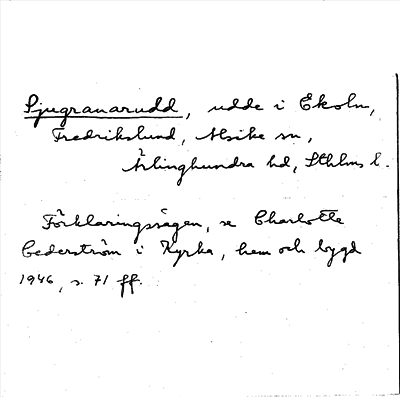 Sjugranarudd, udde i Ekoln,
Fredrikslund, Alsike sn,
Ärlinghundra hd, Sthlms l.
Förklaringssägen, se Charlotte
Cederström i Kyrka, hem och bygd
1946, s. 71 ff.